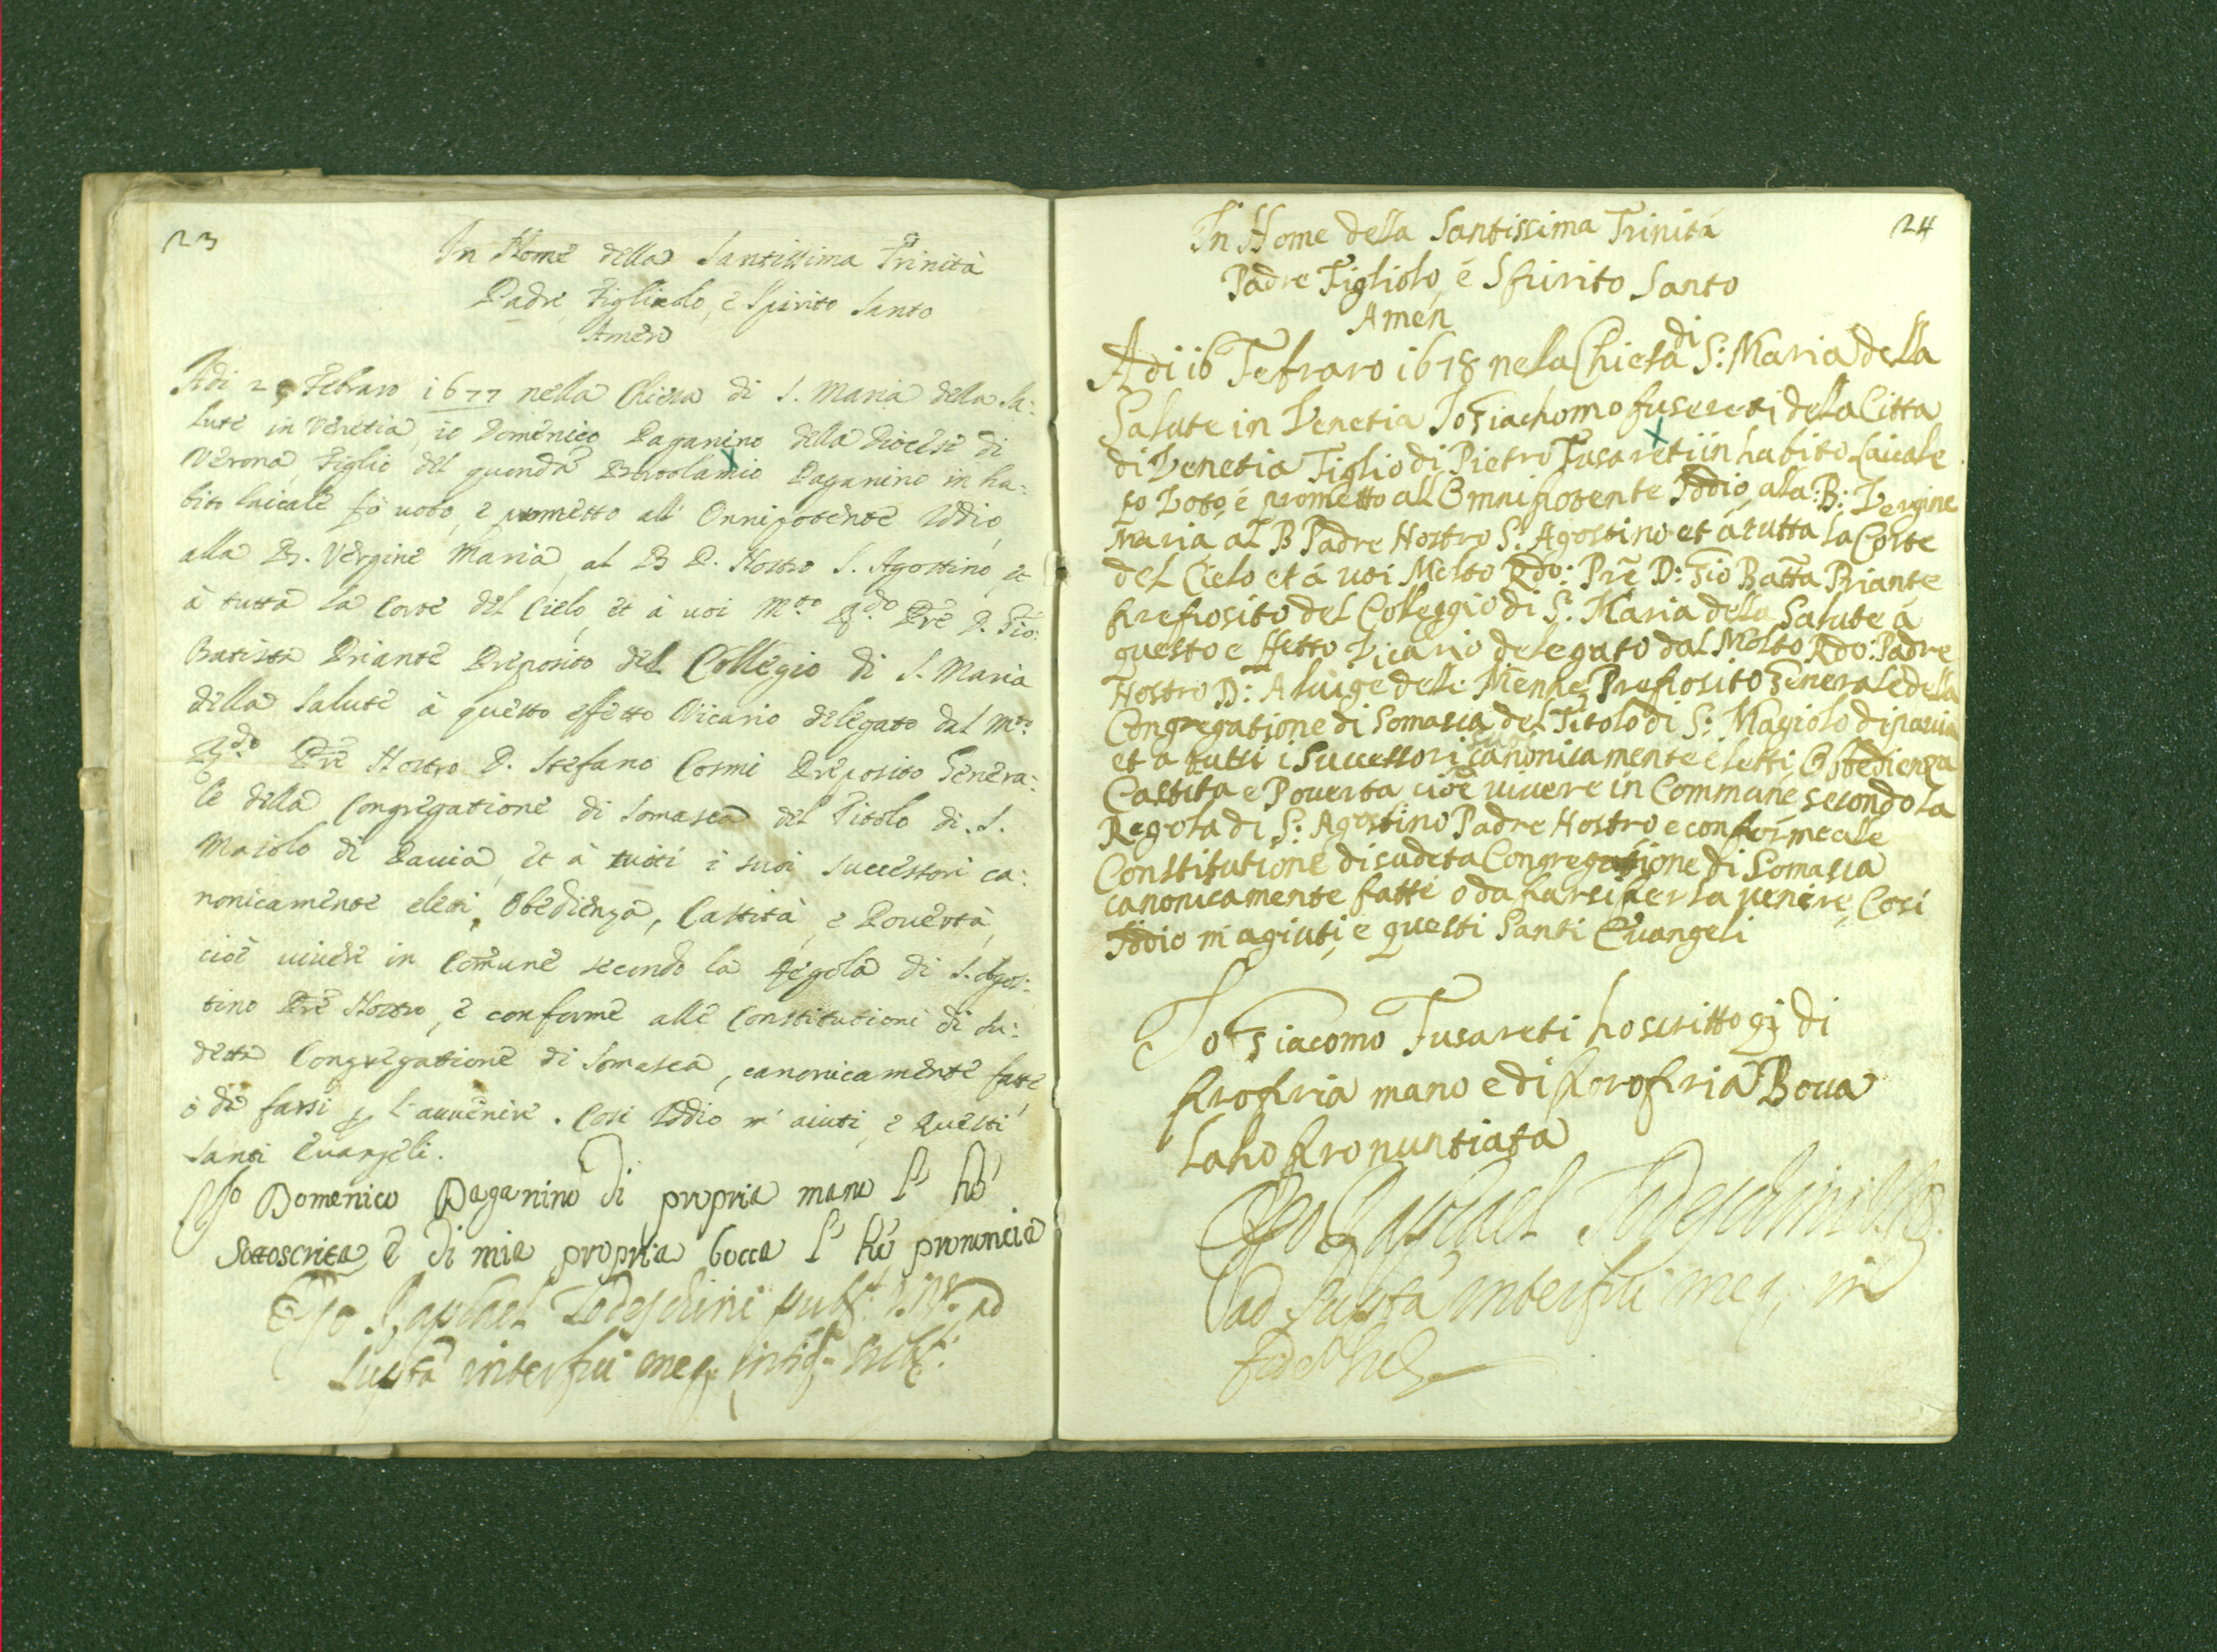 23
In Nome della Santissima Trinità
Padre Figliolo, e Spirito Santo
Amen
Adi 2 Febraro 1677 nella Chiesa di S. Maria della Sa:
lute in Venetia, io Domenico Paganino della Diocesi di
Verona, Figlio del quondã Bortolamio Paganino in ha:
bito laicale fò uoto, e prometto all' Onnipotente Iddio,
alla B. Vergine Maria, al B P. Nostro S. Agostino, et
à tutta la Corte del Cielo, et à uoi Mto Rdo Prē D. Gio:
Batista Briante Preposito del Collegio di S. Maria
della Salute à questo effetto Vicario delegato dal Mto
Rdo Prē Nostro D. Stefano Cosmi Preposito Genera:
le della Congregatione di Somasca del Titolo di S.
Maiolo di Pauia, et à tutti i suoi successori ca:
nonicamente eletti, Obedienza, Castità, e Pouertà,
cioè uiuere in Comũne secondo la Regola di S. Agos:
tino Prē Nostro, e conforme alle Constitutioni di su:
detta Congregatione di Somasca, canonicamente fatte,
ò da farsi p l'auuenire. Cosi Iddio m' aiuti, e questi
Santi Euangeli.
Io Domenico Paganino di propria mano l' hò
sottoscrita e di mia propria bocca l' hò prononcia
Ego Raphael Todeschini pub. V. N. ad
supta interfui meq; in fid. subs.
24
In Nome della Santissima Trinità
Padre Figliolo, é Spirito Santo
Amen
Adi 16 Febraro 1678 nela Chiesa di S: Maria della
Salute in Venetia Io Giachomo fusereti della Citta
di Venetia Figlio di Pietro Fusareti in habito Laicale
fo Voto, é prometto all Omnipotente Iddio, ala: B: Vergine
Maria al B Padre Nostro S. Agostino et á tutta la Corte
del Cielo et á uoi Molto Rdo: Prē D: Gio Batta Briante
preposito del Colleggio di S. Maria della Salute á
questo effetto Vicario delegato dal Molto Rdo: Padre
Nostro D: Aluige delle Menne Preposito Generale della
Congregatione di Somasca del Titolo di S: Magiolo di pauia
et a tutti i Successori canonicamente eletti Obbedienza
Castita e Pouerta cioe uiuere in Commune secondo la
Regola di S: Agostino Padre Nostro e conforme alle
Constitutione di sudeta Congregatione di Somasca
canonicamente fatte o da farsi per la uenire, Cosi
Iddio m agiuti, e questi Santi Euangeli
Io Giacomo Fusareti ho scritto qī di
propria mano e di propria Boca
la ho pronuntiata
Ego Raphael Todeschini
ad supta interfui meq; in
fid. subs.